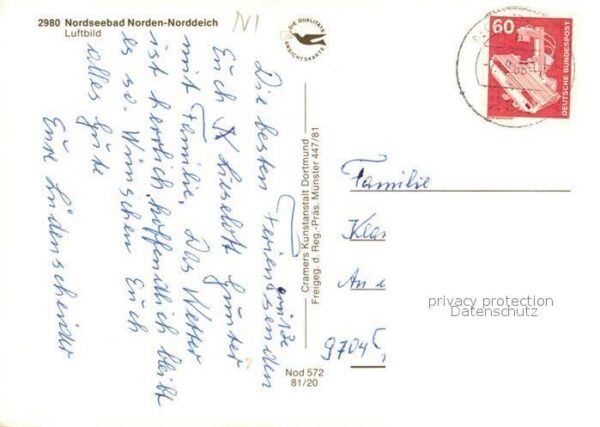 2980 Nordseebad Norden-Norddeich
Luftbild
N1
DIE QUALITÄTS
ANSICHTSKARTE
60
DEUTSCHE BUNDESPOST
Die besten Ferien
grüße senden
Euch Liselott Günter
mit Familie. Das Wetter
ist herrlich, hoffentlich bleibt
es so. Wünschen Euch
alles Gute
Eure Lüdenscheider
Cramers Kunstanstalt Dortmund
Freigeg. d. Reg.-Präs. Münster 447/81
Nod 572
81/20
Familie
Kla
An
9704
privacy protection
Datenschutz